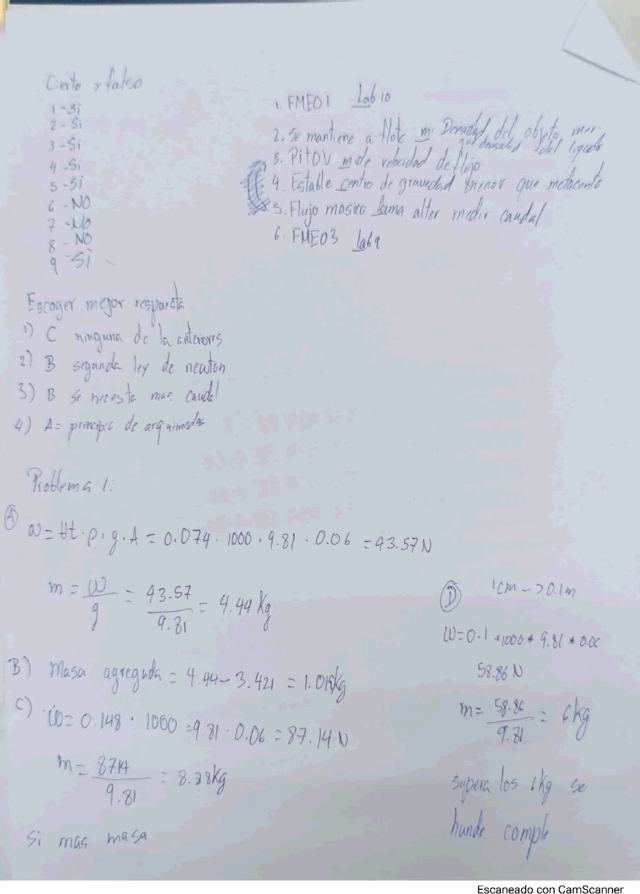 Cierto y falso
1 - Si
2 - Si
3 - Si
4 - Si
5 - Si
6 - NO
7 - NO
8 - NO
9 - Si
1. FMEO1 Lab 10
2. Se mantiene a flote m Densidad del objeto menor
que densidad del liquido
3. PitoV mide velocidad de flujo
4. Estable centro de gravedad menor que metacentro
5. Flujo masico llama alter medir caudal
6. FMEO3 Lab 9
Escoger mejor respuesta
1) C ninguna de la anteriores
2) B segunda ley de newton
3) B se necesita mas caudal
4) A = principio de arquimedes
Problema 1:
A) W = Ht · ρ · g · A = 0.074 · 1000 · 9.81 · 0.06 = 43.57 N
m = W/g = 43.57/9.81 = 4.44 Kg
B) Masa agregada = 4.44 - 3.421 = 1.019kg
C) W = 0.148 · 1000 = 9.81 · 0.06 = 87.14 N
m = 8714/9.81 = 8.88kg
Si mas masa
D) 1cm -> 0.1m
W = 0.1 * 1000 * 9.81 * 0.06
58.86 N
m = 58.86/9.81 = 6kg
supera los 6kg se
hunde comple
Escaneado con CamScanner